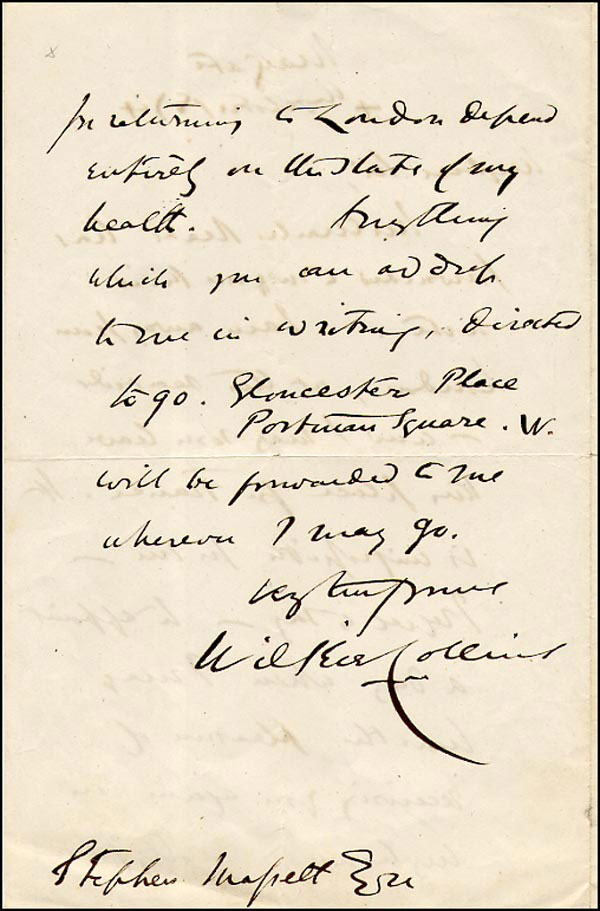 for returning to London depend
entirely on the state of my
health. Anything
which you can address
to me in writing, directed
to 90. Gloucester Place
Portman Square. W.
will be forwarded to me
wherever I may go.
Very truly yours
Wilkie Collins
Stephen Massett Esqre